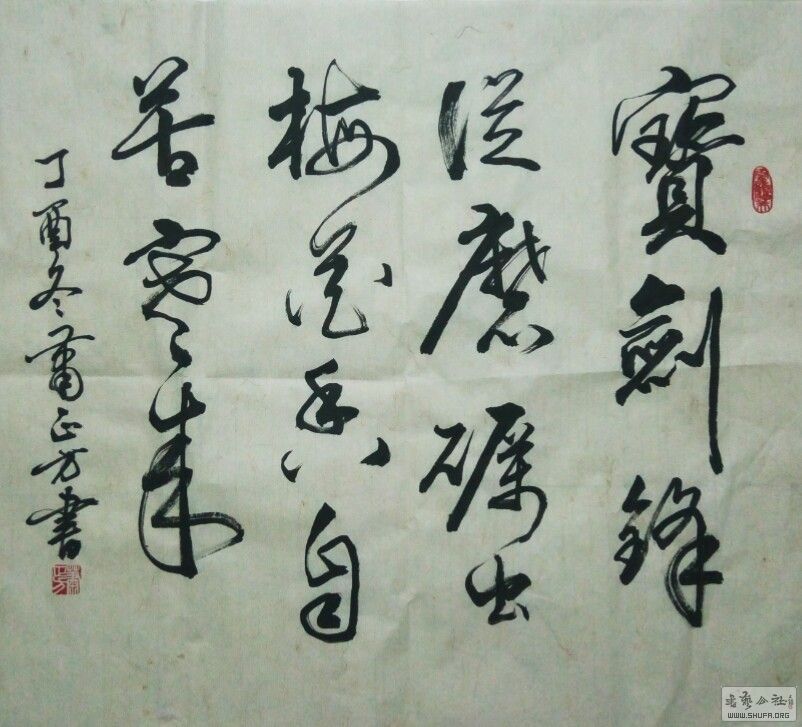 寶劍鋒
從磨礪出
梅花香自
苦寒來
丁酉冬蕭正方書
書藝公社
WWW.SHUFA.ORG